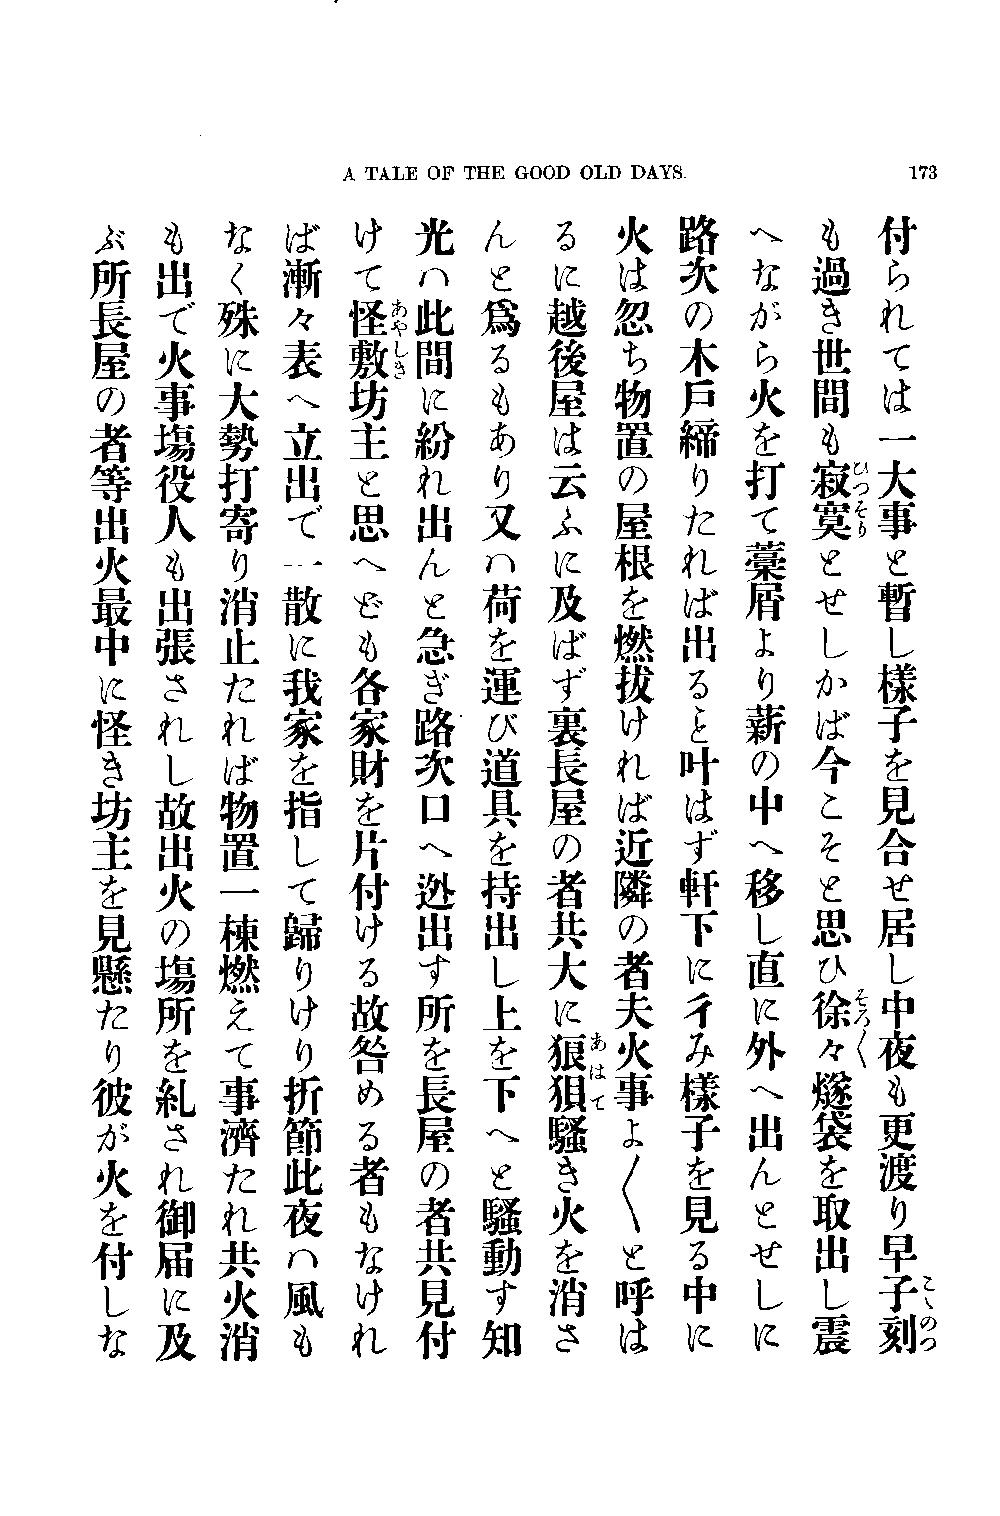 A TALE OF THE GOOD OLD DAYS.
173
付られては一大事と暫し樣子を見合せ居し中夜も更渡り早子刻
こゝのつ
も過き世間も寂寞とせしかば今こそと思ひ徐々燧袋を取出し震
ひつそり
そろ〱
へながら火を打て藁屑より薪の中へ移し直に外へ出んとせしに
路次の木戸締りたれば出ると叶はず軒下に彳み樣子を見る中に
火は忽ち物置の屋根を燃拔ければ近隣の者夫火事よ〱と呼は
るに越後屋は云ふに及ばず裏長屋の者共大に狼狽騷き火を消さ
あはて
んと爲るもあり又ハ荷を運び道具を持出し上を下へと騷動す知
光ハ此間に紛れ出んと急ぎ路次口へ迯出す所を長屋の者共見付
けて怪敷坊主と思へども各家財を片付ける故咎める者もなけれ
あやしき
ば漸々表へ立出で一散に我家を指して歸りけり折節此夜ハ風も
なく殊に大勢打寄り消止たれば物置一棟燃えて事濟たれ共火消
も出で火事塲役人も出張されし故出火の塲所を糺され御届に及
ぶ所長屋の者等出火最中に怪き坊主を見懸たり彼が火を付しな